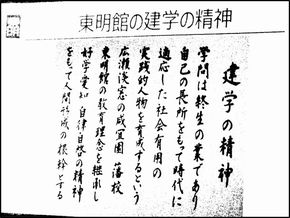 東明館の建学の精神
建学の精神
学問は終生の業であり
自己の長所をもって時代に
適応した社会有用の
実践的人物を育成するという
広瀬淡窓の咸宜園 藩校
東明館の教育理念を継承し
好学愛知 自律自啓の精神
をもって人間形成の根幹とする